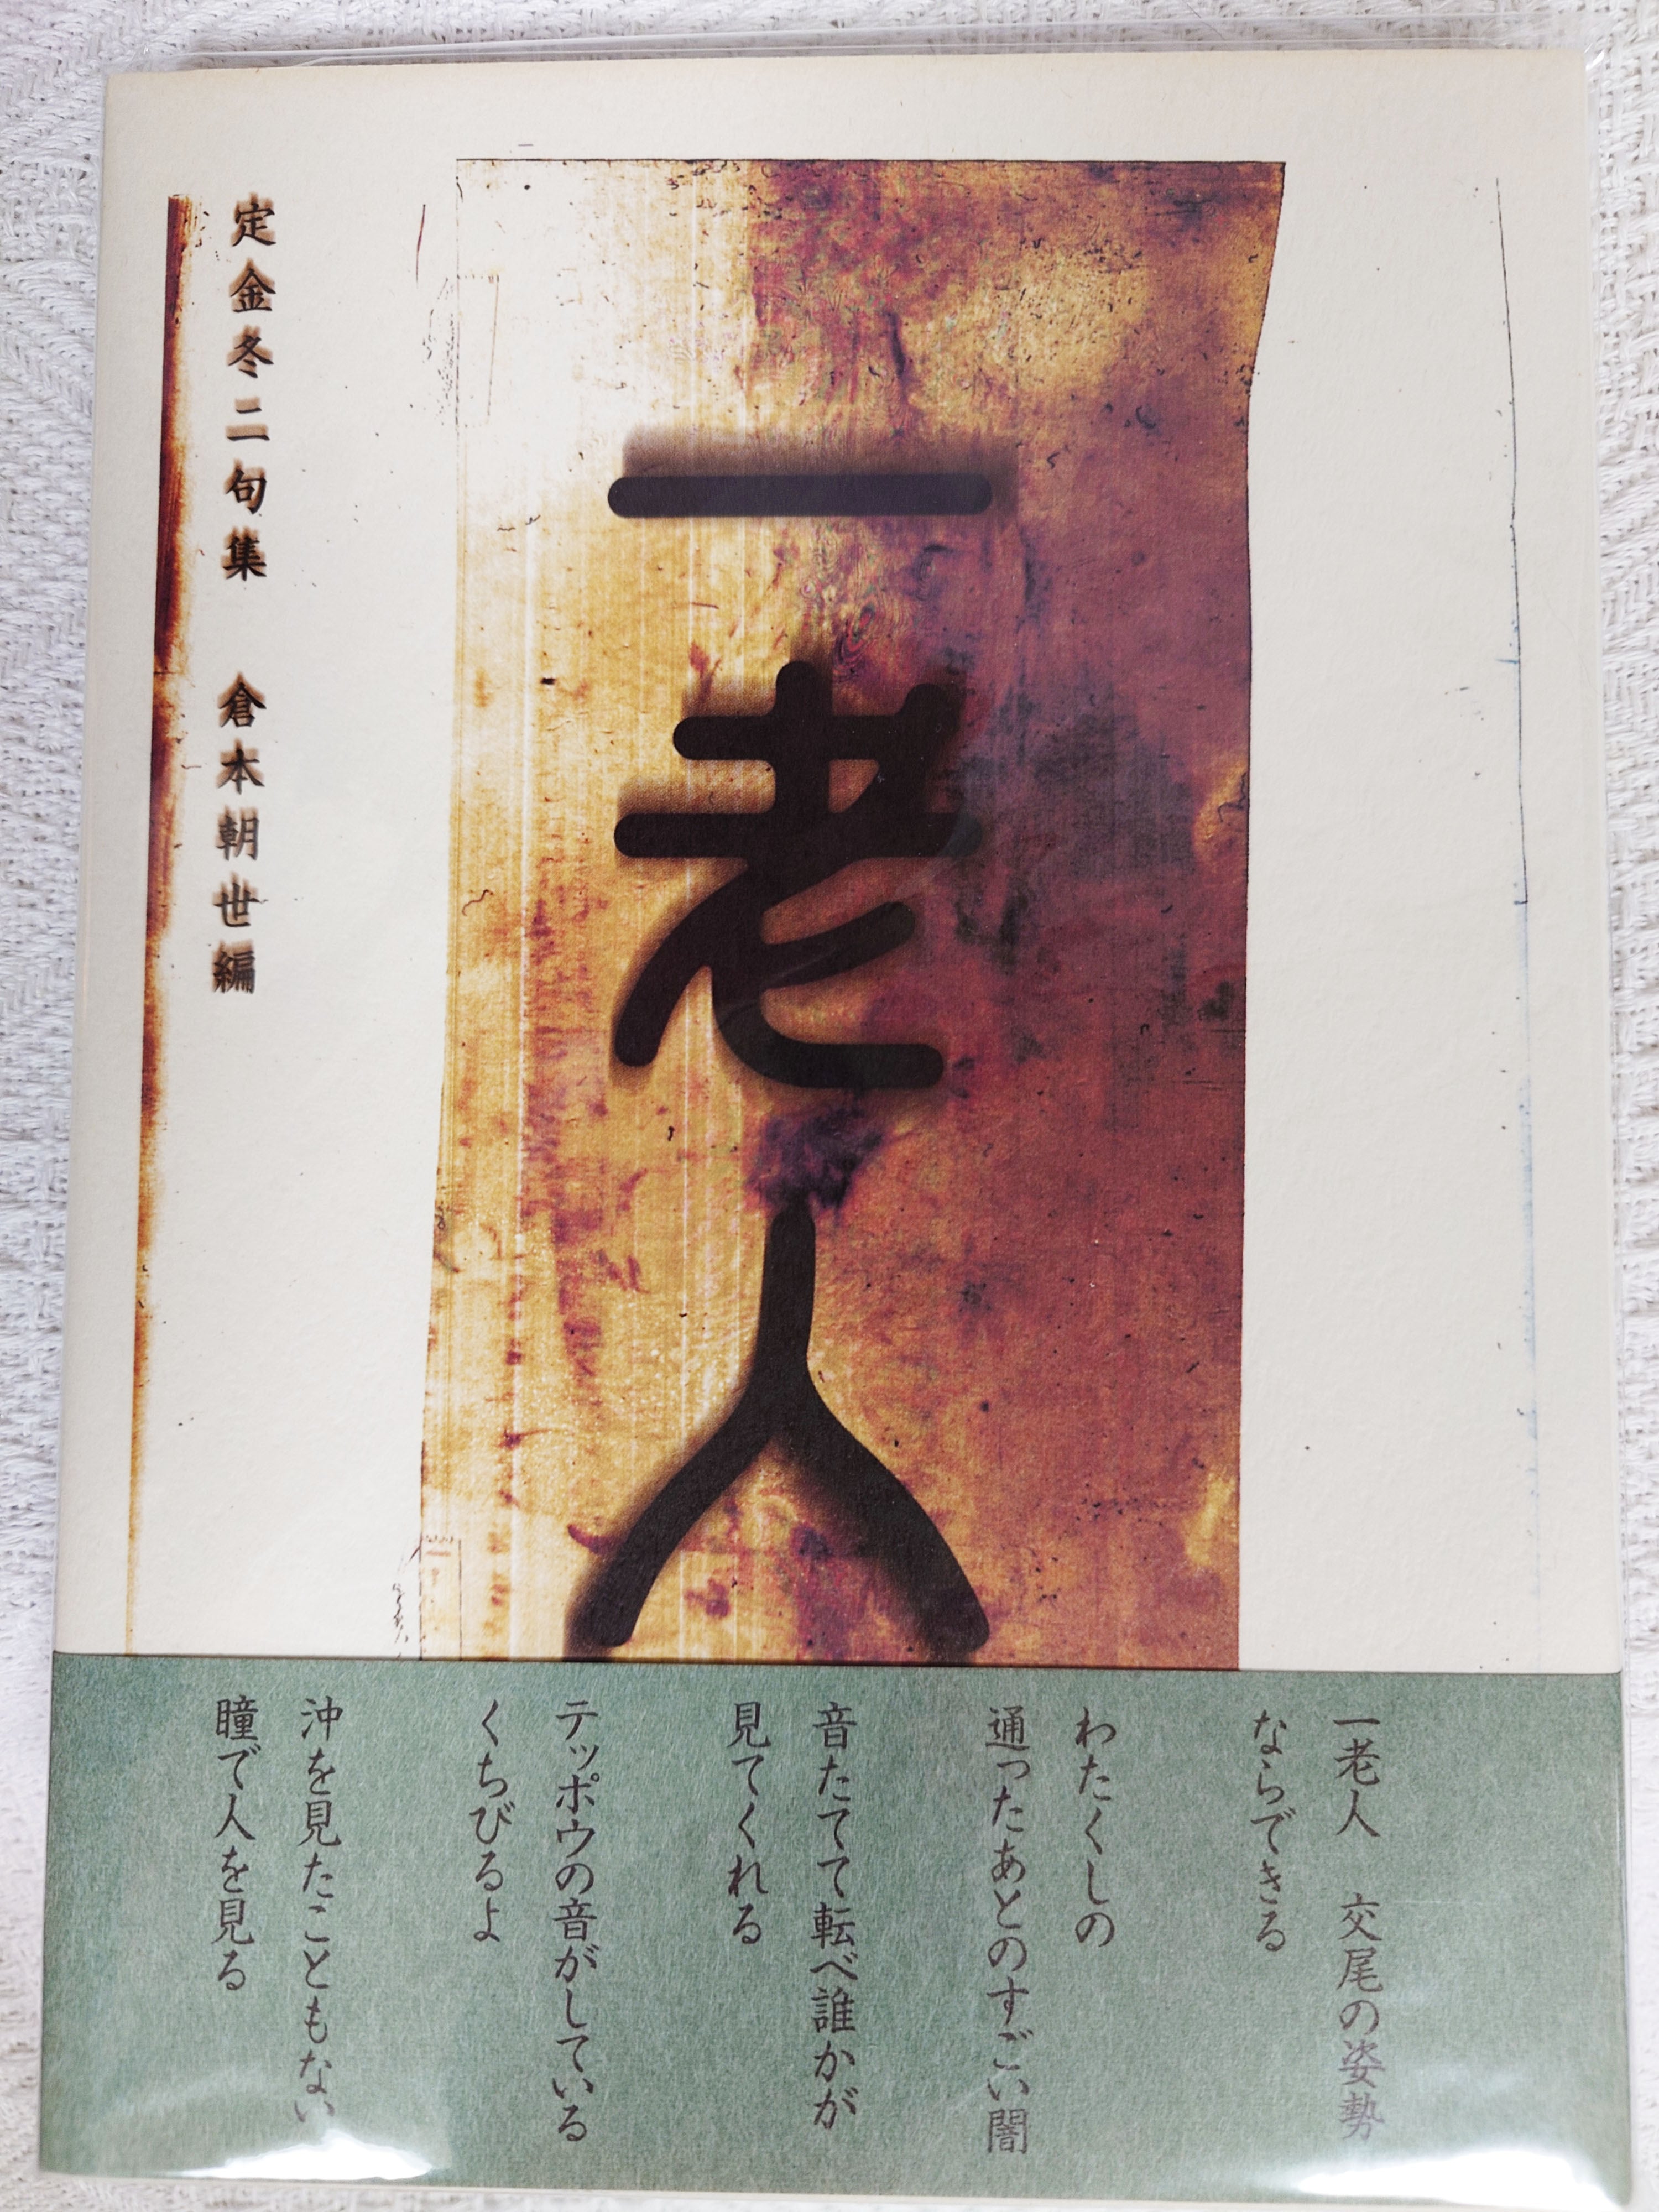 一老人
定金冬二句集 倉本朝世編
一老人 交尾の姿勢
ならできる
わたくしの
通ったあとのすごい闇
音たてて転べ誰かが
見てくれる
テッポウの音がしている
くちびるよ
沖を見たこともない
瞳で人を見る